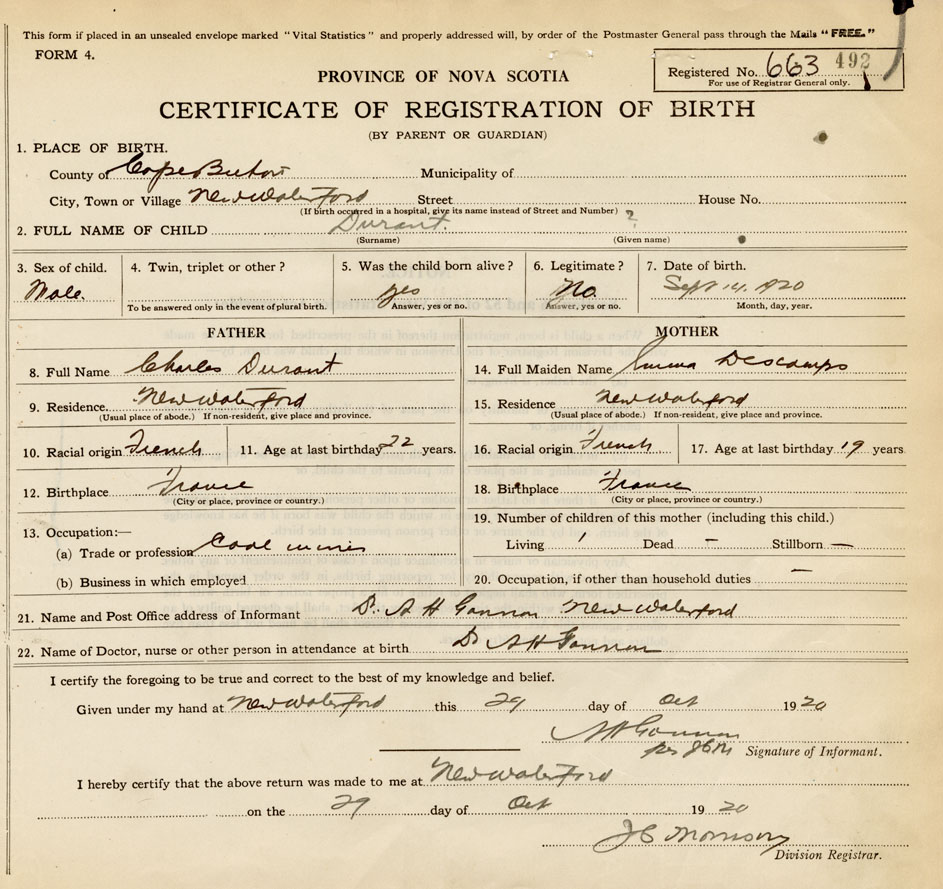 This form if placed in an unsealed envelope marked "Vital Statistics" and properly addressed will, by order of the Postmaster General pass through the Mails "FREE."
FORM 4.
PROVINCE OF NOVA SCOTIA
Registered No. 663 492
For use of Registrar General only.
CERTIFICATE OF REGISTRATION OF BIRTH
(BY PARENT OR GUARDIAN)
1. PLACE OF BIRTH.
County of Cape Breton Municipality of
City, Town or Village New Waterford Street House No.
(If birth occurred in a hospital, give its name instead of Street and Number)
2. FULL NAME OF CHILD Durant. ?
(Surname) (Given name)
3. Sex of child. 4. Twin, triplet or other? 5. Was the child born alive? 6. Legitimate? 7. Date of birth.
Male. yes No. Sept 14, 1920
To be answered only in the event of plural birth. Answer, yes or no. Answer, yes or no. Month, day, year.
FATHER MOTHER
8. Full Name Charles Durant 14. Full Maiden Name Emma Descamps
9. Residence. New Waterford 15. Residence New Waterford
(Usual place of abode.) If non-resident, give place and province. (Usual place of abode.) If non-resident, give place and province.
10. Racial origin French 11. Age at last birthday 22 years. 16. Racial origin French 17. Age at last birthday 19 years
12. Birthplace France 18. Birthplace France
(City or place, province or country.) (City or place, province or country.)
13. Occupation:— 19. Number of children of this mother (including this child.)
(a) Trade or profession Coal miner Living 1 Dead – Stillborn —
(b) Business in which employed 20. Occupation, if other than household duties –
21. Name and Post Office address of Informant Dr. A H Gannon New Waterford
22. Name of Doctor, nurse or other person in attendance at birth Dr A H Gannon
I certify the foregoing to be true and correct to the best of my knowledge and belief.
Given under my hand at New Waterford this 29 day of Oct 1920
A H Gannon
per Signature of Informant.
I hereby certify that the above return was made to me at New Waterford
on the 29 day of Oct 1920
J C Morrison
Division Registrar.